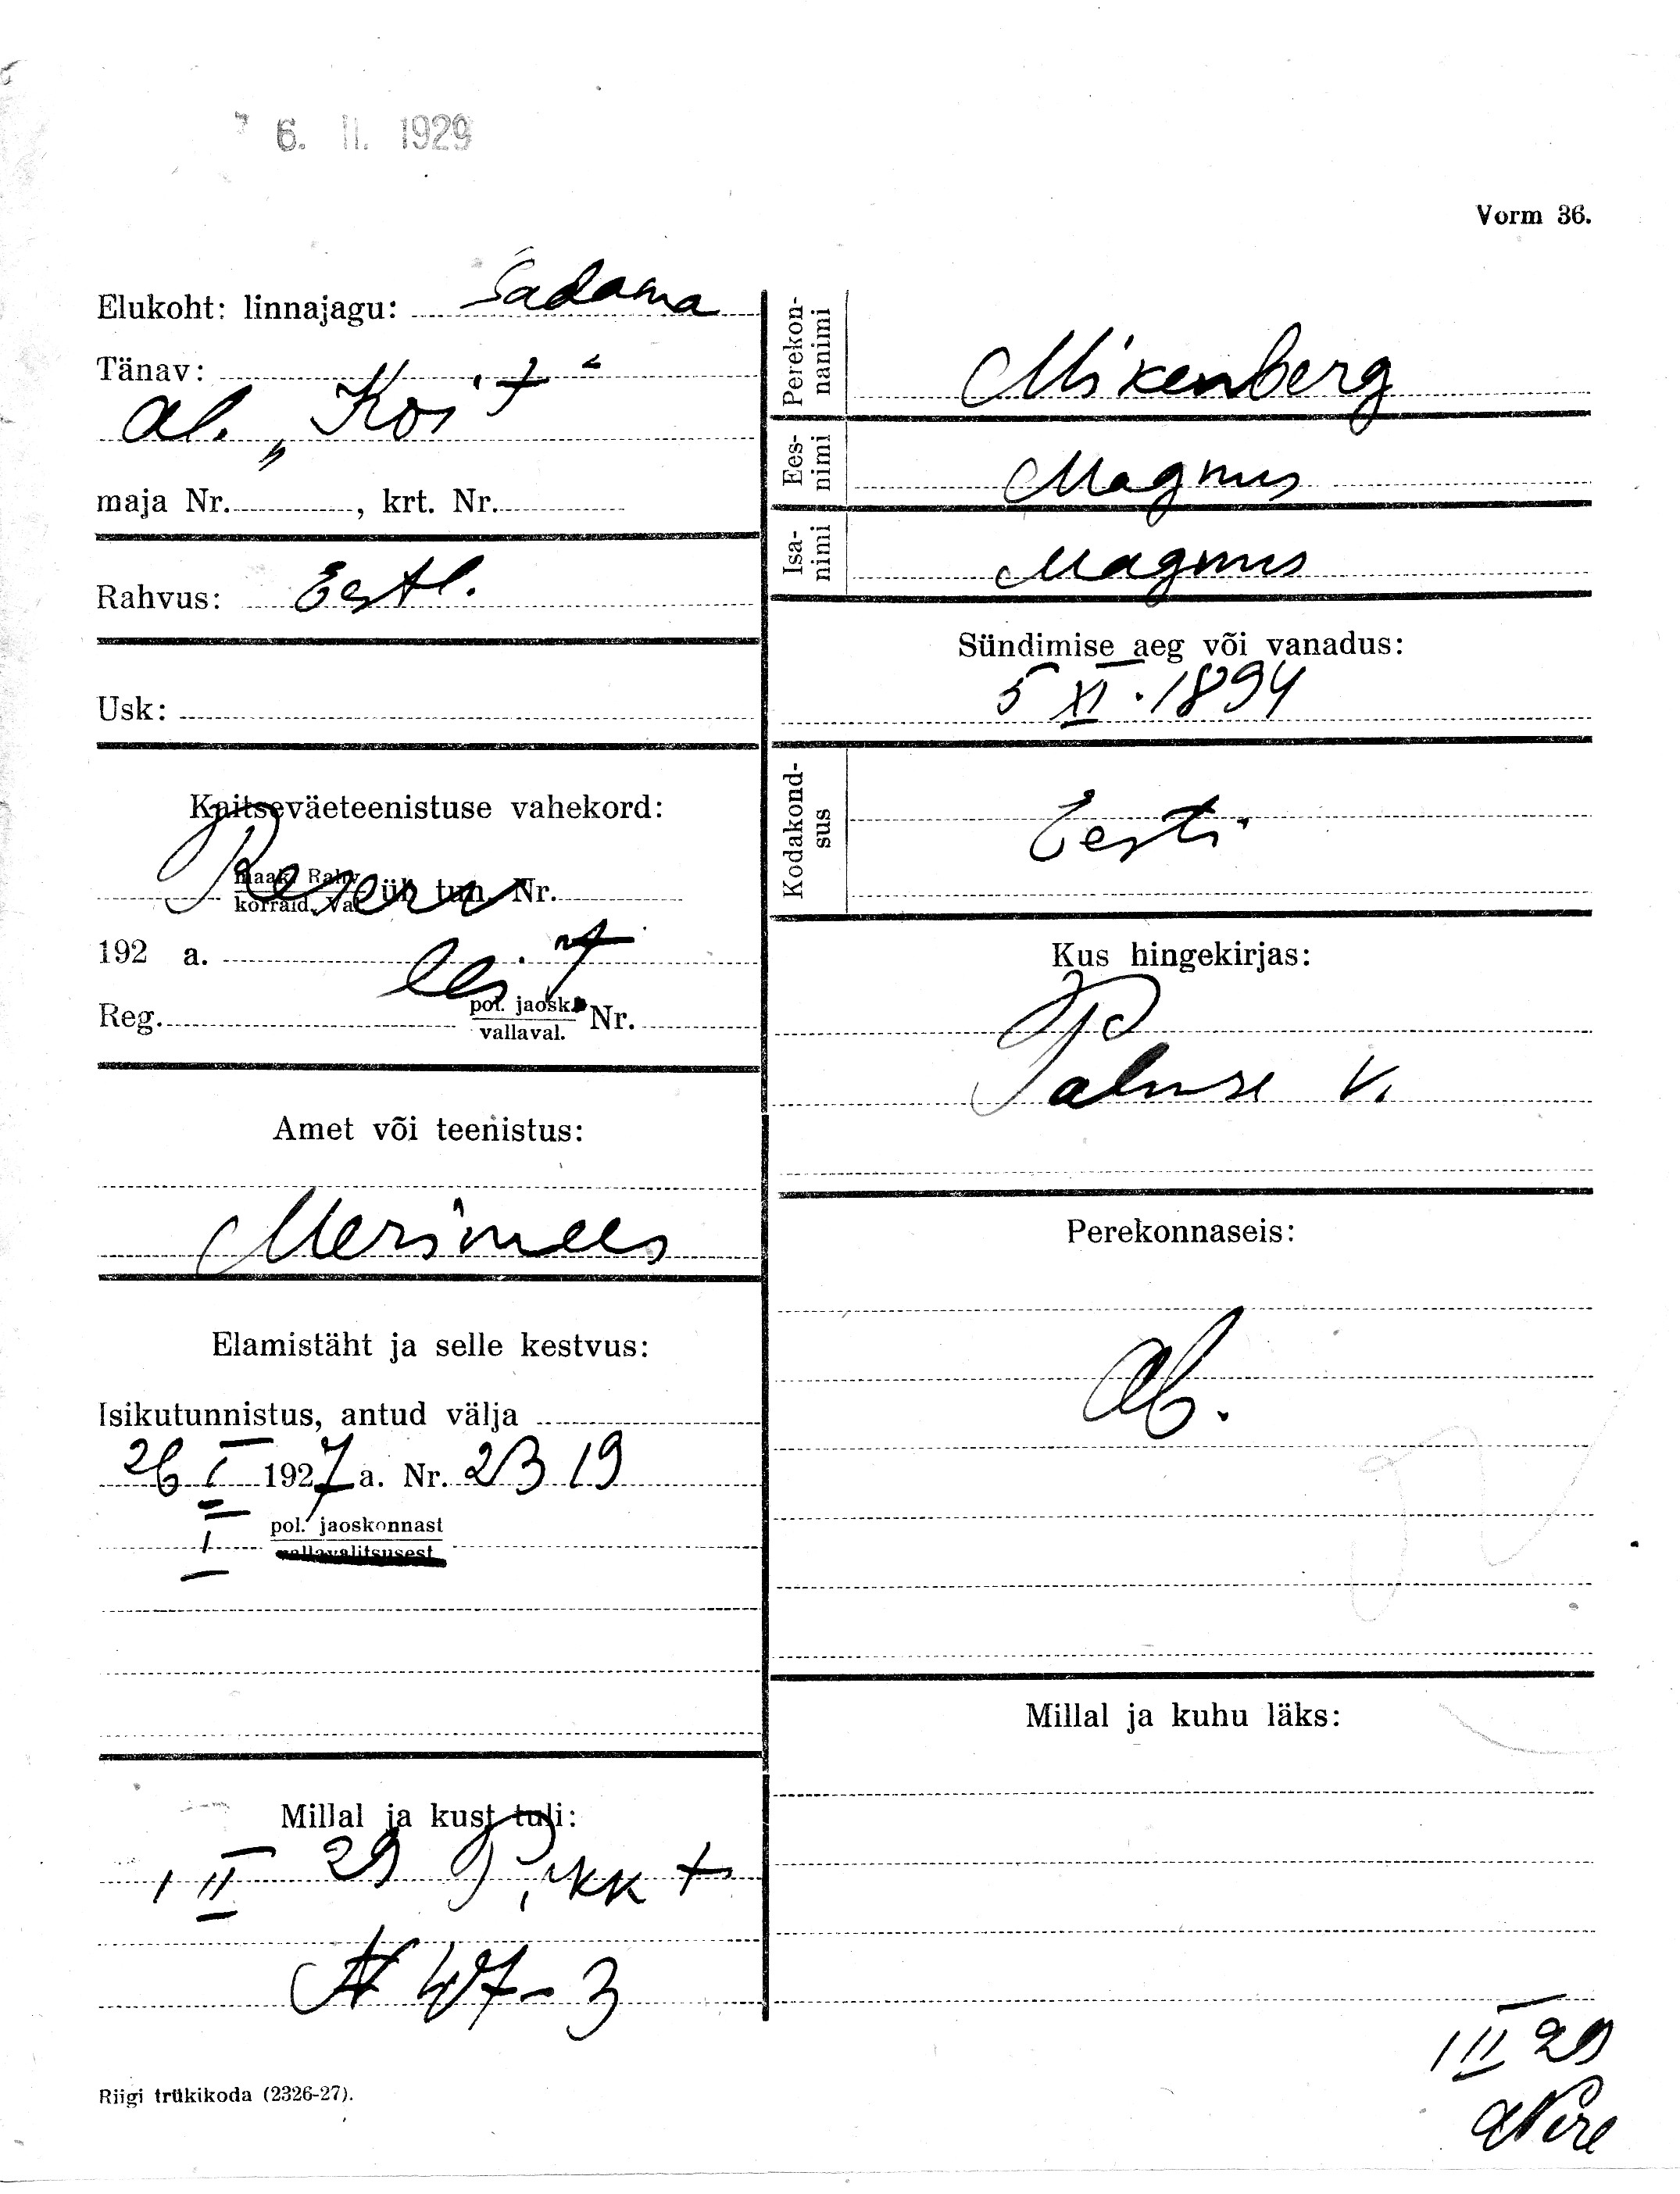 6. II. 1929
Vorm 36.
Elukoht: linnajagu: Sadama
Tänav:
al. „Koit“
maja Nr. , krt. Nr.
Rahvus: Eestl.
Usk:
Kaitseväeteenistuse vahekord:
Reserv
maak. Rahv. üh. tun. Nr.
korraid. Va
192 a. leitn
Reg. pol. jaosk. Nr.
vallaval.
Amet või teenistus:
Merimees
Elamistäht ja selle kestvus:
Isikutunnistus, antud välja
26 I 1927 a. Nr. 2319
I pol. jaoskonnast
vallavalitsusest
Millal ja kust tuli:
1 II 29 Pikk t
N 47-3
Riigi trükikoda (2326-27).
Perekonnanimi
Mikenberg
Eesnimi
Magnus
Isanimi
Magnus
Sündimise aeg või vanadus:
5 XI. 1894
Kodakondsus
Eesti
Kus hingekirjas:
Palmse v.
Perekonnaseis:
Ab.
Millal ja kuhu läks:
1 II 29